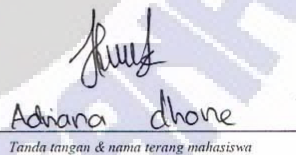 Adriana dhone
Tanda tangan & nama terang mahasiswa